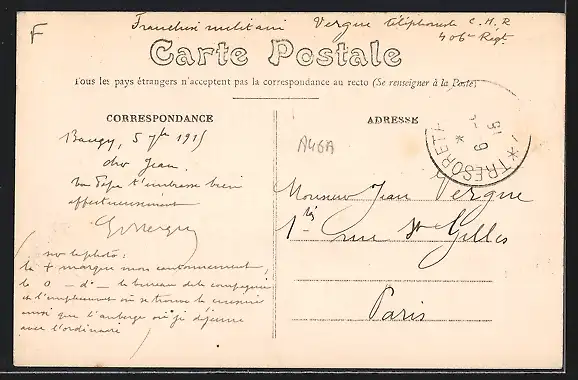 F
Franchise militaire Vergne téléphoniste C.H.R
406e Régt
Carte Postale
Tous les pays étrangers n'acceptent pas la correspondance au recto (Se renseigner à la Poste)
CORRESPONDANCE
ADRESSE
5 7bre 1915
cher Jean
Ton Papa t'embrasse bien
affectueusement
GVergne
A46A
TRESOR ET
9
15
Monsieur Jean Vergne
1bis rue St Gilles
Paris
sur la photo :
la + marque mon cantonnement,
le o — d° — le bureau de la compagnie
et l'emplacement où se trouve la cuisine
ainsi que l'auberge où je déjeune
avec l'ordinaire